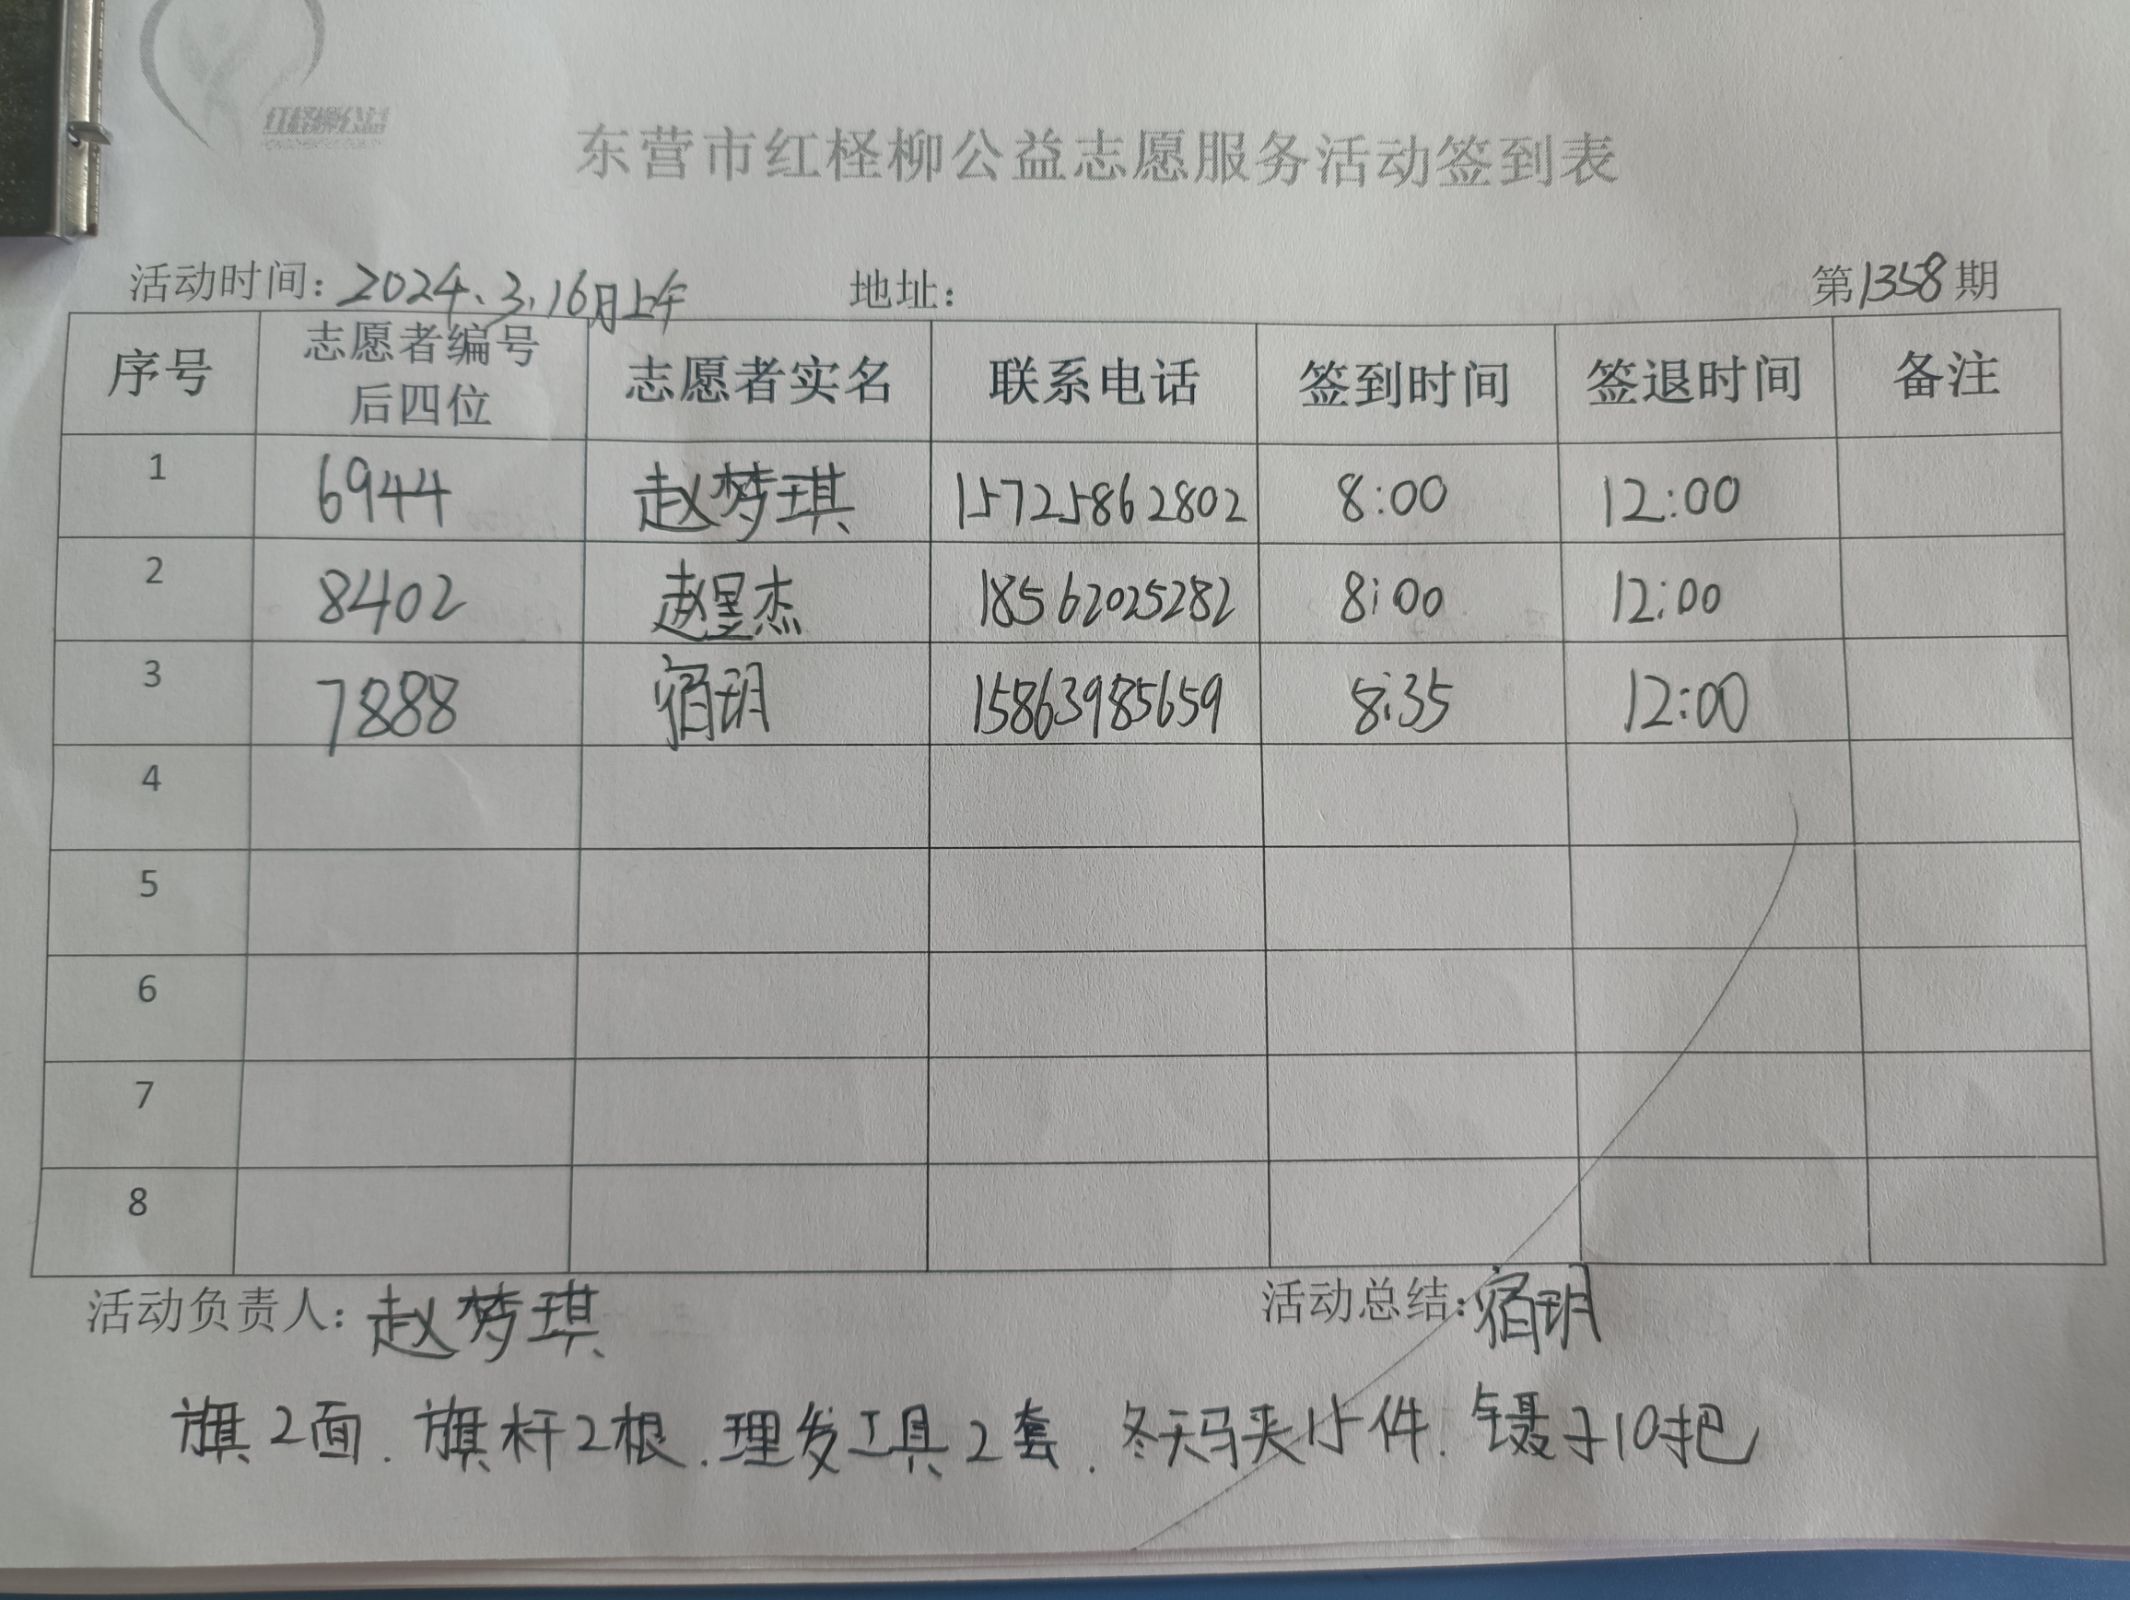 红柽柳公益
东营市红柽柳公益志愿服务活动签到表
活动时间：2024、3、16月上午 地址： 第1358期
序号 志愿者编号后四位 志愿者实名 联系电话 签到时间 签退时间 备注
1 6944 赵梦琪 15725862802 8:00 12:00
2 8402 赵昱杰 18562025282 8:00 12:00
3 7888 宿玥 15863985659 8:35 12:00
4
5
6
7
8
活动负责人：赵梦琪 活动总结：宿玥
旗2面．旗杆2根．理发工具2套．冬天马夹15件．镊子10把